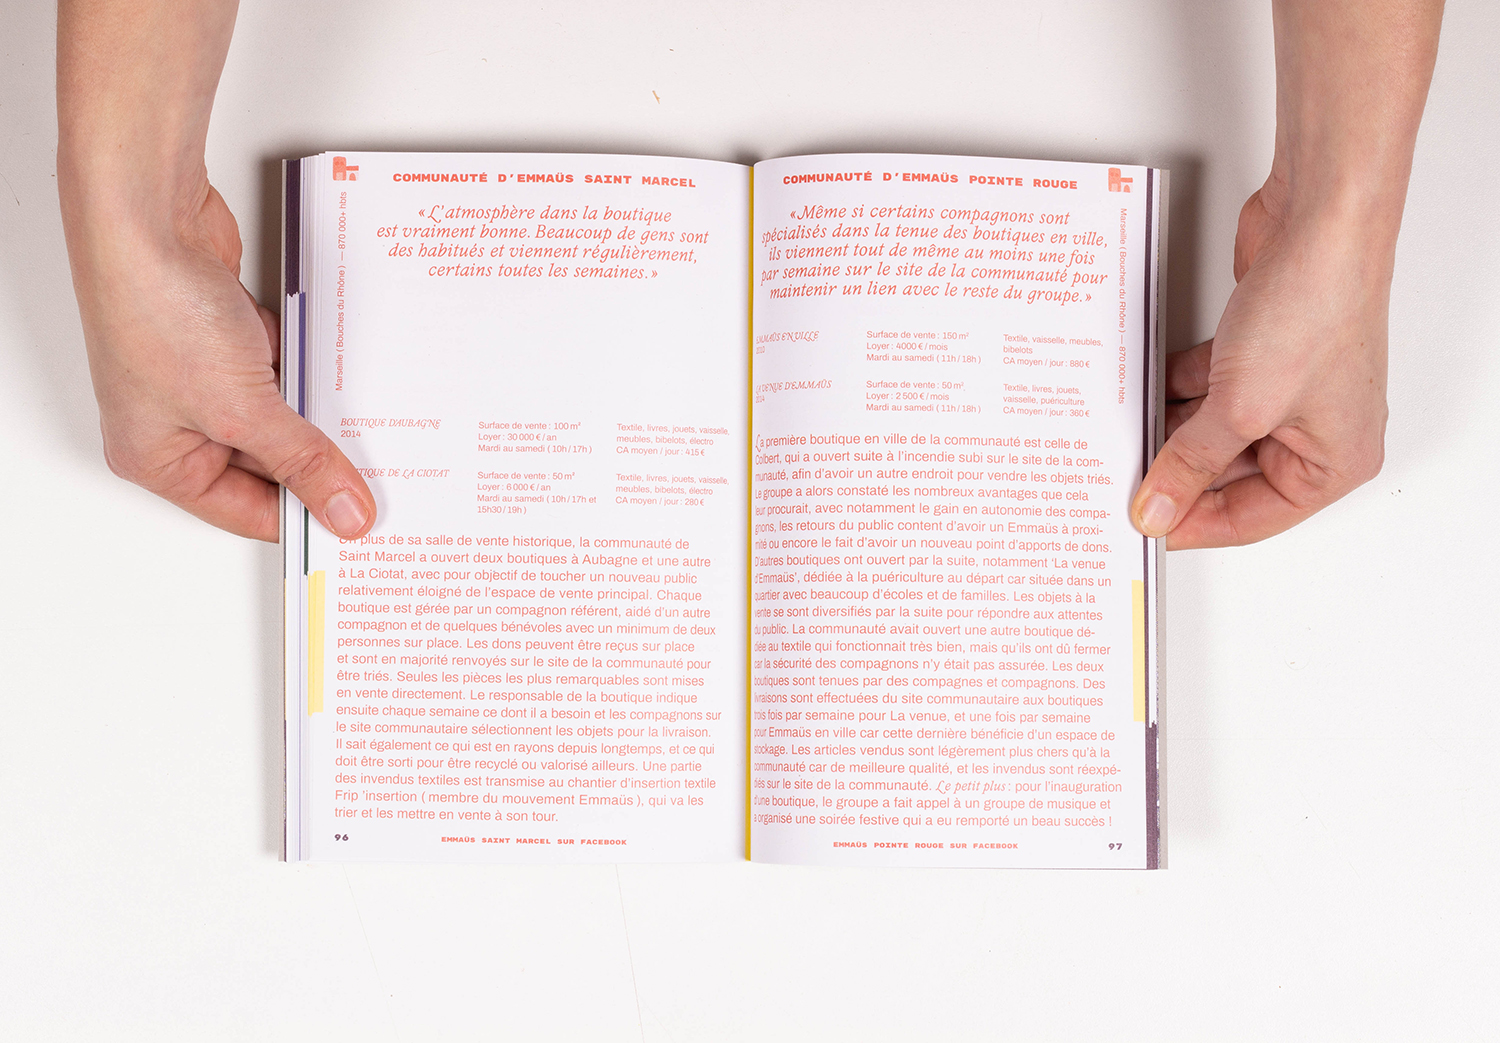 COMMUNAUTÉ D'EMMAÜS SAINT MARCEL
Marseille ( Bouches du Rhône ) — 870 000+ hbts
« L'atmosphère dans la boutique
est vraiment bonne. Beaucoup de gens sont
des habitués et viennent régulièrement,
certains toutes les semaines. »
BOUTIQUE D'AUBAGNE
2014
Surface de vente : 100 m²
Loyer : 30 000 € / an
Mardi au samedi ( 10h / 17h )
Textile, livres, jouets, vaisselle,
meubles, bibelots, électro
CA moyen / jour : 415 €
DE LA CIOTAT
Surface de vente : 50 m²
Loyer : 6 000 € / an
Mardi au samedi ( 10h / 17h et
15h30 / 19h )
Textile, livres, jouets, vaisselle,
meubles, bibelots, électro
CA moyen / jour : 280 €
En plus de sa salle de vente historique, la communauté de
Saint Marcel a ouvert deux boutiques à Aubagne et une autre
à La Ciotat, avec pour objectif de toucher un nouveau public
relativement éloigné de l'espace de vente principal. Chaque
boutique est gérée par un compagnon référent, aidé d'un autre
compagnon et de quelques bénévoles avec un minimum de deux
personnes sur place. Les dons peuvent être reçus sur place
et sont en majorité renvoyés sur le site de la communauté pour
être triés. Seules les pièces les plus remarquables sont mises
en vente directement. Le responsable de la boutique indique
ensuite chaque semaine ce dont il a besoin et les compagnons sur
le site communautaire sélectionnent les objets pour la livraison.
Il sait également ce qui est en rayons depuis longtemps, et ce qui
doit être sorti pour être recyclé ou valorisé ailleurs. Une partie
des invendus textiles est transmise au chantier d'insertion textile
Frip 'insertion ( membre du mouvement Emmaüs ), qui va les
trier et les mettre en vente à son tour.
96
EMMAÜS SAINT MARCEL SUR FACEBOOK
COMMUNAUTÉ D'EMMAÜS POINTE ROUGE
Marseille ( Bouches du Rhône ) — 870 000+ hbts
« Même si certains compagnons sont
spécialisés dans la tenue des boutiques en ville,
ils viennent tout de même au moins une fois
par semaine sur le site de la communauté pour
maintenir un lien avec le reste du groupe. »
EMMAÜS EN VILLE
Surface de vente : 150 m²
Loyer : 4000 € / mois
Mardi au samedi ( 11h / 18h )
Textile, vaisselle, meubles,
bibelots
CA moyen / jour : 880 €
LA VENUE D'EMMAÜS
2014
Surface de vente : 50 m²
Loyer : 2 500 € / mois
Mardi au samedi ( 11h / 18h )
Textile, livres, jouets,
vaisselle, puériculture
CA moyen / jour : 360 €
La première boutique en ville de la communauté est celle de
Colbert, qui a ouvert suite à l'incendie subi sur le site de la com-
munauté, afin d'avoir un autre endroit pour vendre les objets triés.
Le groupe a alors constaté les nombreux avantages que cela
leur procurait, avec notamment le gain en autonomie des compa-
gnons, les retours du public content d'avoir un Emmaüs à proxi-
mité ou encore le fait d'avoir un nouveau point d'apports de dons.
D'autres boutiques ont ouvert par la suite, notamment 'La venue
d'Emmaüs', dédiée à la puériculture au départ car située dans un
quartier avec beaucoup d'écoles et de familles. Les objets à la
vente se sont diversifiés par la suite pour répondre aux attentes
du public. La communauté avait ouvert une autre boutique dé-
diée au textile qui fonctionnait très bien, mais qu'ils ont dû fermer
car la sécurité des compagnons n'y était pas assurée. Les deux
boutiques sont tenues par des compagnes et compagnons. Des
livraisons sont effectuées du site communautaire aux boutiques
trois fois par semaine pour La venue, et une fois par semaine
pour Emmaüs en ville car cette dernière bénéficie d'un espace de
stockage. Les articles vendus sont légèrement plus chers qu'à la
communauté car de meilleure qualité, et les invendus sont réexpé-
diés sur le site de la communauté. Le petit plus : pour l'inauguration
d'une boutique, le groupe a fait appel à un groupe de musique et
a organisé une soirée festive qui a eu remporté un beau succès !
EMMAÜS POINTE ROUGE SUR FACEBOOK
97